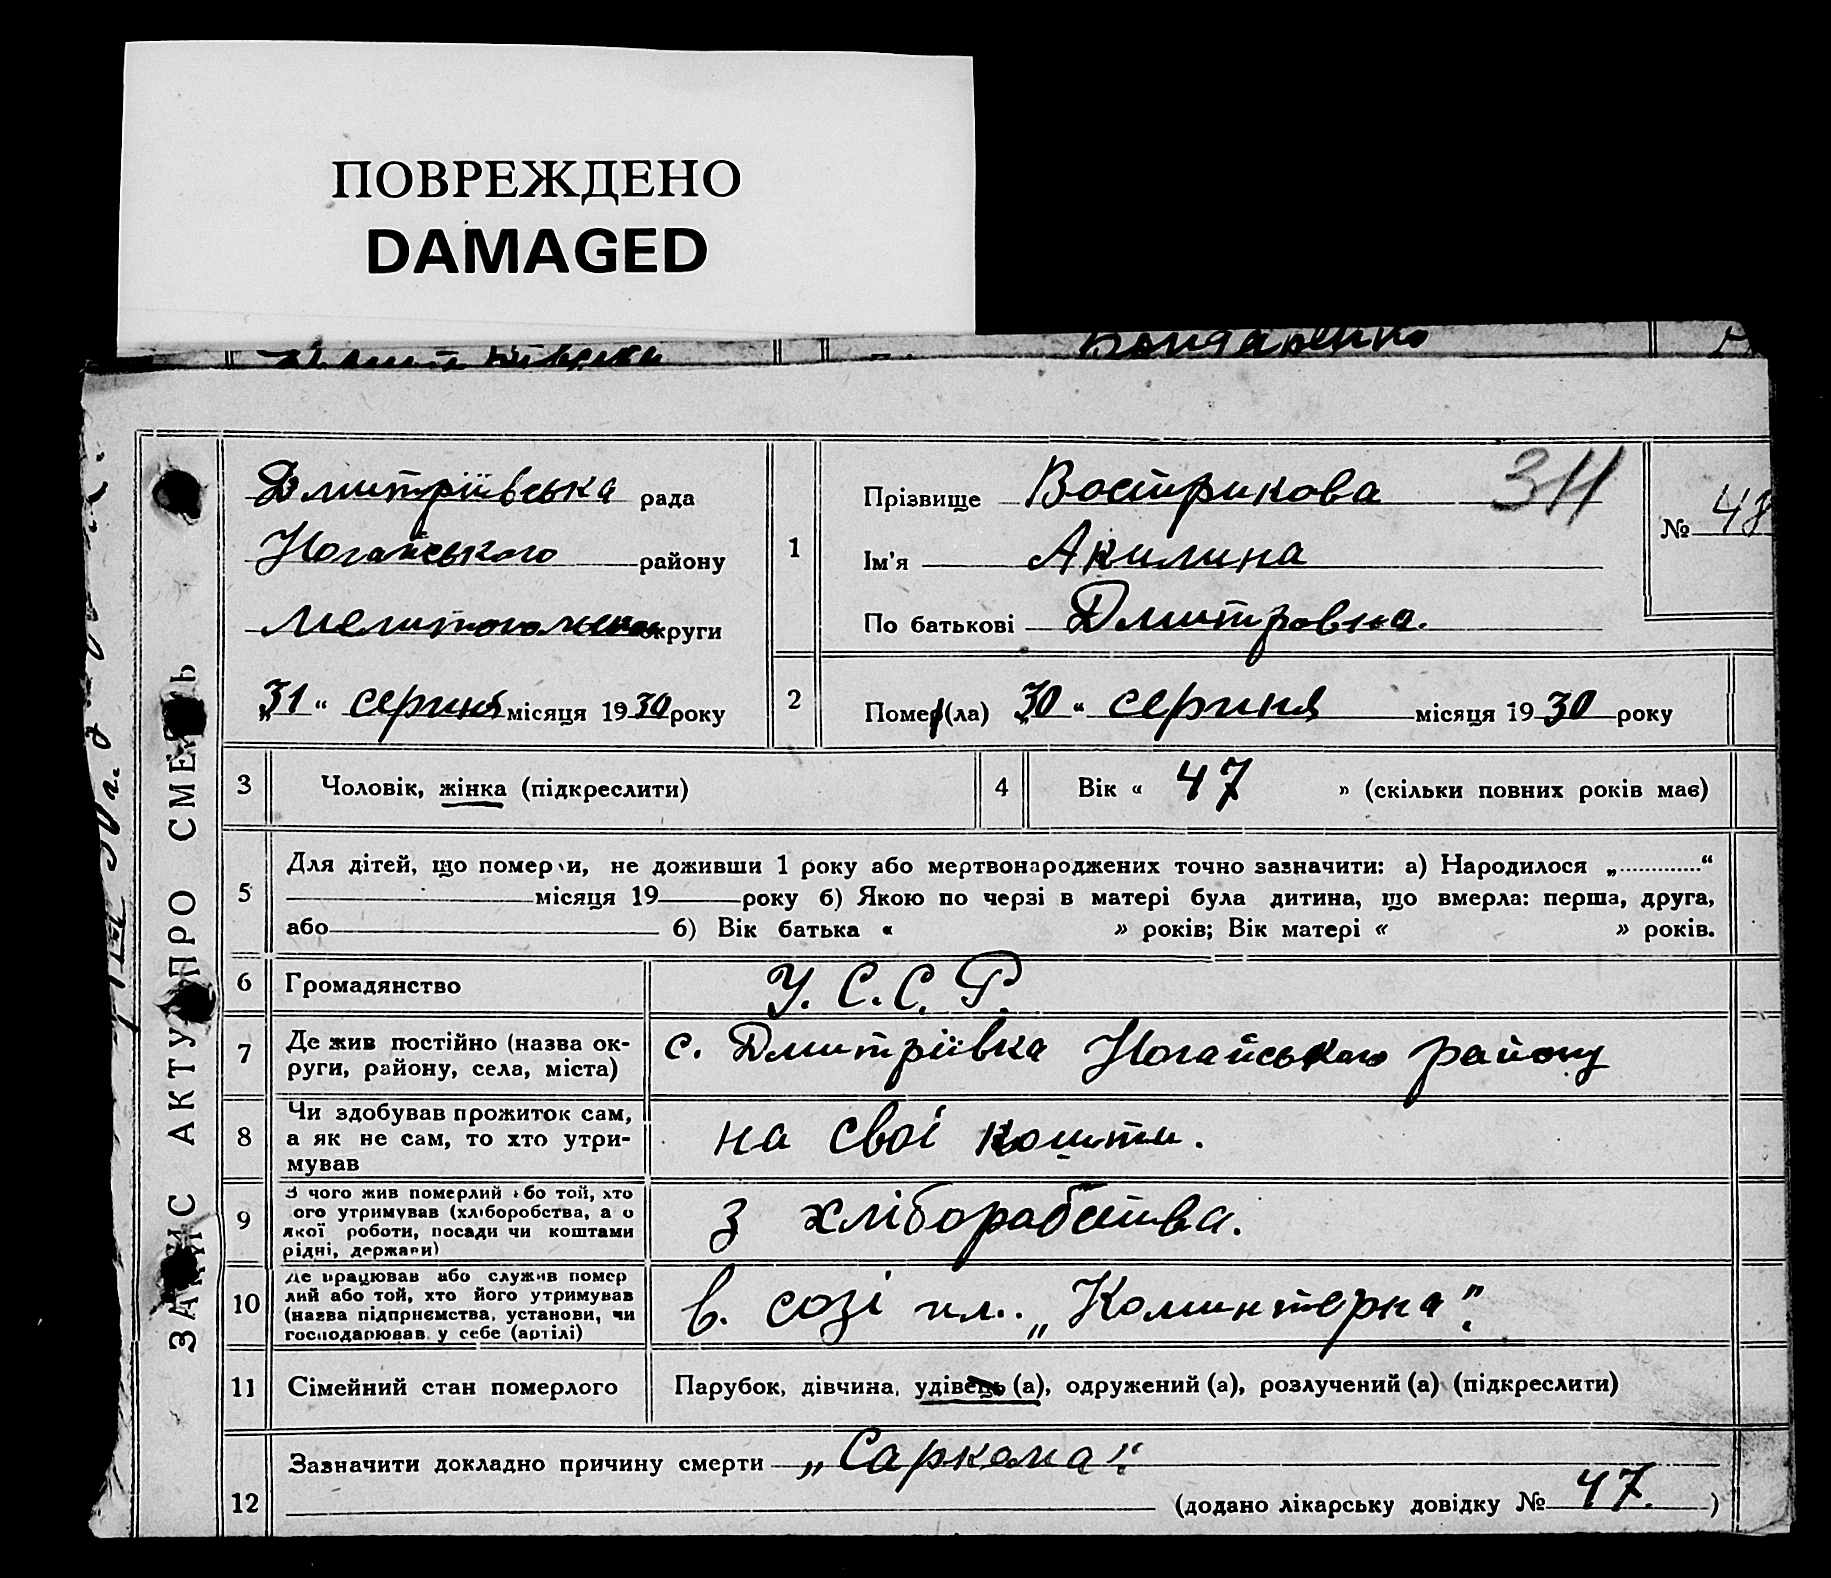 ПОВРЕЖДЕНО
DAMAGED
Бондаренко
ЗАПИС АКТУ ПРО СМЕРТЬ
Дмитріївська рада
Ногайського району
Мелитопольської округи
„31“ серпня місяця 1930 року
1
Прізвище Вострикова 311
Ім'я Акилина
По батькові Дмитровна.
№ 48
2
Помер(ла) „30“ серпня місяця 1930 року
3 Чоловік, жінка (підкреслити)
4 Вік « 47 » (скільки повних років має)
5
Для дітей, що померли, не доживши 1 року або мертвонароджених точно зазначити: а) Народилося „............“
місяця 19 року б) Якою по черзі в матері була дитина, що вмерла: перша, друга,
або б) Вік батька « » років; Вік матері « » років.
6 Громадянство У.С.С.Р.
7 Де жив постійно (назва ок-
руги, району, села, міста)
с. Дмитріївка Ногайського району
8 Чи здобував прожиток сам,
а як не сам, то хто утри-
мував
на свої кошти.
9 З чого жив померлий або той, хто
його утримував (хліборобства, а о
якої роботи, посади чи коштами
рідні, держави)
з хліборабства.
10 Де працював або служив помер
лий або той, хто його утримував
(назва підприємства, установи, чи
господарював у себе (артілі)
в. созі им. „Коминтерна“.
11 Сімейний стан померлого Парубок, дівчина, удівець (а), одружений (а), розлучений (а) (підкреслити)
12
Зазначити докладно причину смерти „Саркома“.
(додано лікарську довідку № 47. )